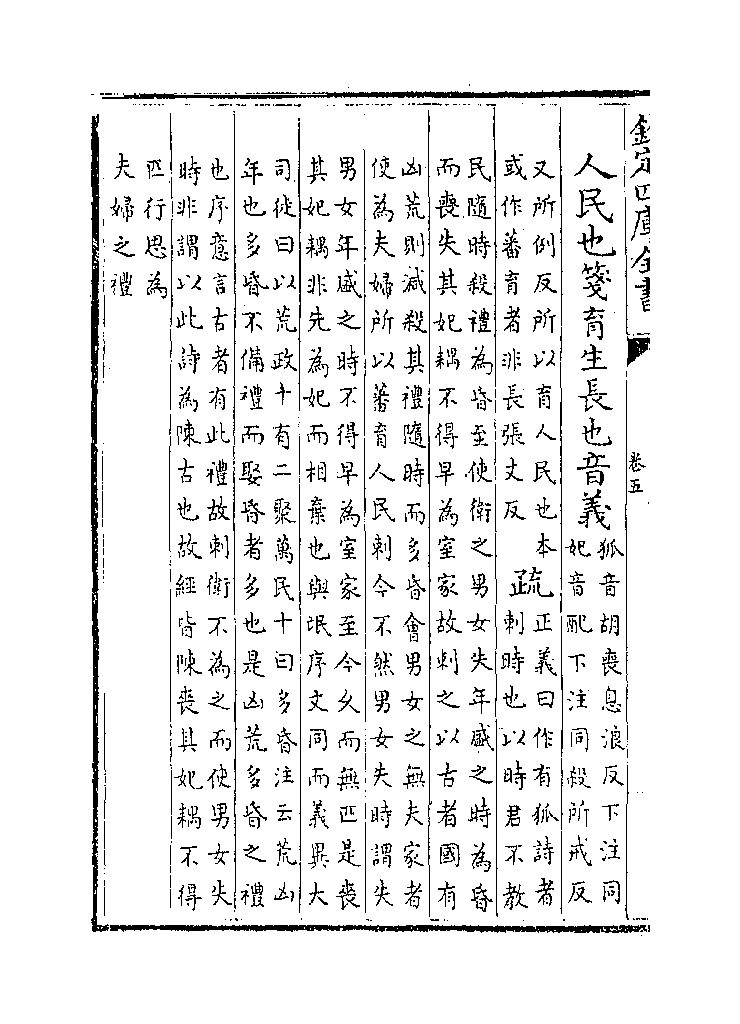 欽定四庫全書
卷五
人民也箋育生長也音義
狐音胡喪息浪反下注同
妃音配下注同殺所戒反
又所例反所以育人民也本
或作蕃育者非長張丈反
疏
正義曰作有狐詩者
刺時也以時君不教
民隨時殺禮為昏至使衛之男女失年盛之時為昏
而喪失其妃耦不得早為室家故刺之以古者國有
凶荒則減殺其禮隨時而多昏會男女之無夫家者
使為夫婦所以蕃育人民刺今不然男女失時謂失
男女年盛之時不得早為室家至今久而無匹是喪
其妃耦非先為妃而相棄也與氓序文同而義異大
司徒曰以荒政十有二聚萬民十曰多昏注云荒凶
年也多昏不備禮而娶昏者多也是凶荒多昏之禮
也序意言古者有此禮故刺衛不為之而使男女失
時非謂以此詩為陳古也故經皆陳喪其妃耦不得
匹行思為
夫婦之禮